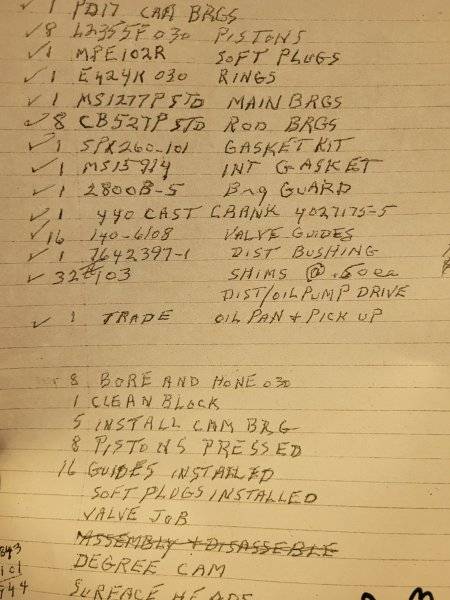 ✓ 1 PD17 CAM BRGS
✓ 8 L2355F 030 PISTONS
✓ 1 MPE102R SOFT PLUGS
✓ 1 E424K 030 RINGS
✓ 1 MS1277P STD MAIN BRGS
✓ 8 CB527P STD ROD BRGS
✓ 1 SPK260-101 GASKET KIT
✓ 1 MS15914 INT GASKET
✓ 1 2800B-5 Brg GUARD
✓ 1 440 CAST CRANK 4027175-5
✓ 16 140-6108 VALVE GUIDES
✓ 1 7642397-1 DIST BUSHING
✓ 32 103 SHIMS @ .60 ea
DIST/OIL PUMP DRIVE
✓ 1 TRADE OIL PAN + PICK UP
8 BORE AND HONE 030
1 CLEAN BLOCK
5 INSTALL CAM BRG
8 PISTONS PRESSED
16 GUIDES INSTALLED
SOFT PLUGS INSTALLED
VALVE JOB
ASSEMBLY + DISASSEBLE
DEGREE CAM
SURFACE HEADS
843
101
944